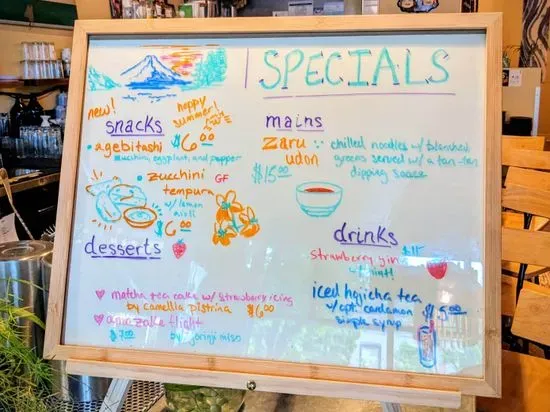 SPECIALS
new!
happy
summer!
snacks
agebitashi $6.00
zucchini, eggplant, and pepper
zucchini GF
tempura
w/ lemon
$6.00
desserts
matcha tea cake w/ strawberry icing
by camellia pistrina $6.00
amazake flight
$7.00 by jorinji miso
mains
zaru chilled noodles w/ blanched
udon greens served w/ a tan-tan
$15.00 dipping sauce
drinks
strawberry gin $15
iced hojicha tea $5.00
w/ opt. cardamom
simple syrup